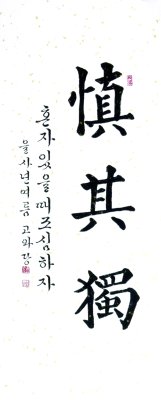 愼其獨
혼자 있을 때 조심하자
을사년 여름 고와랑